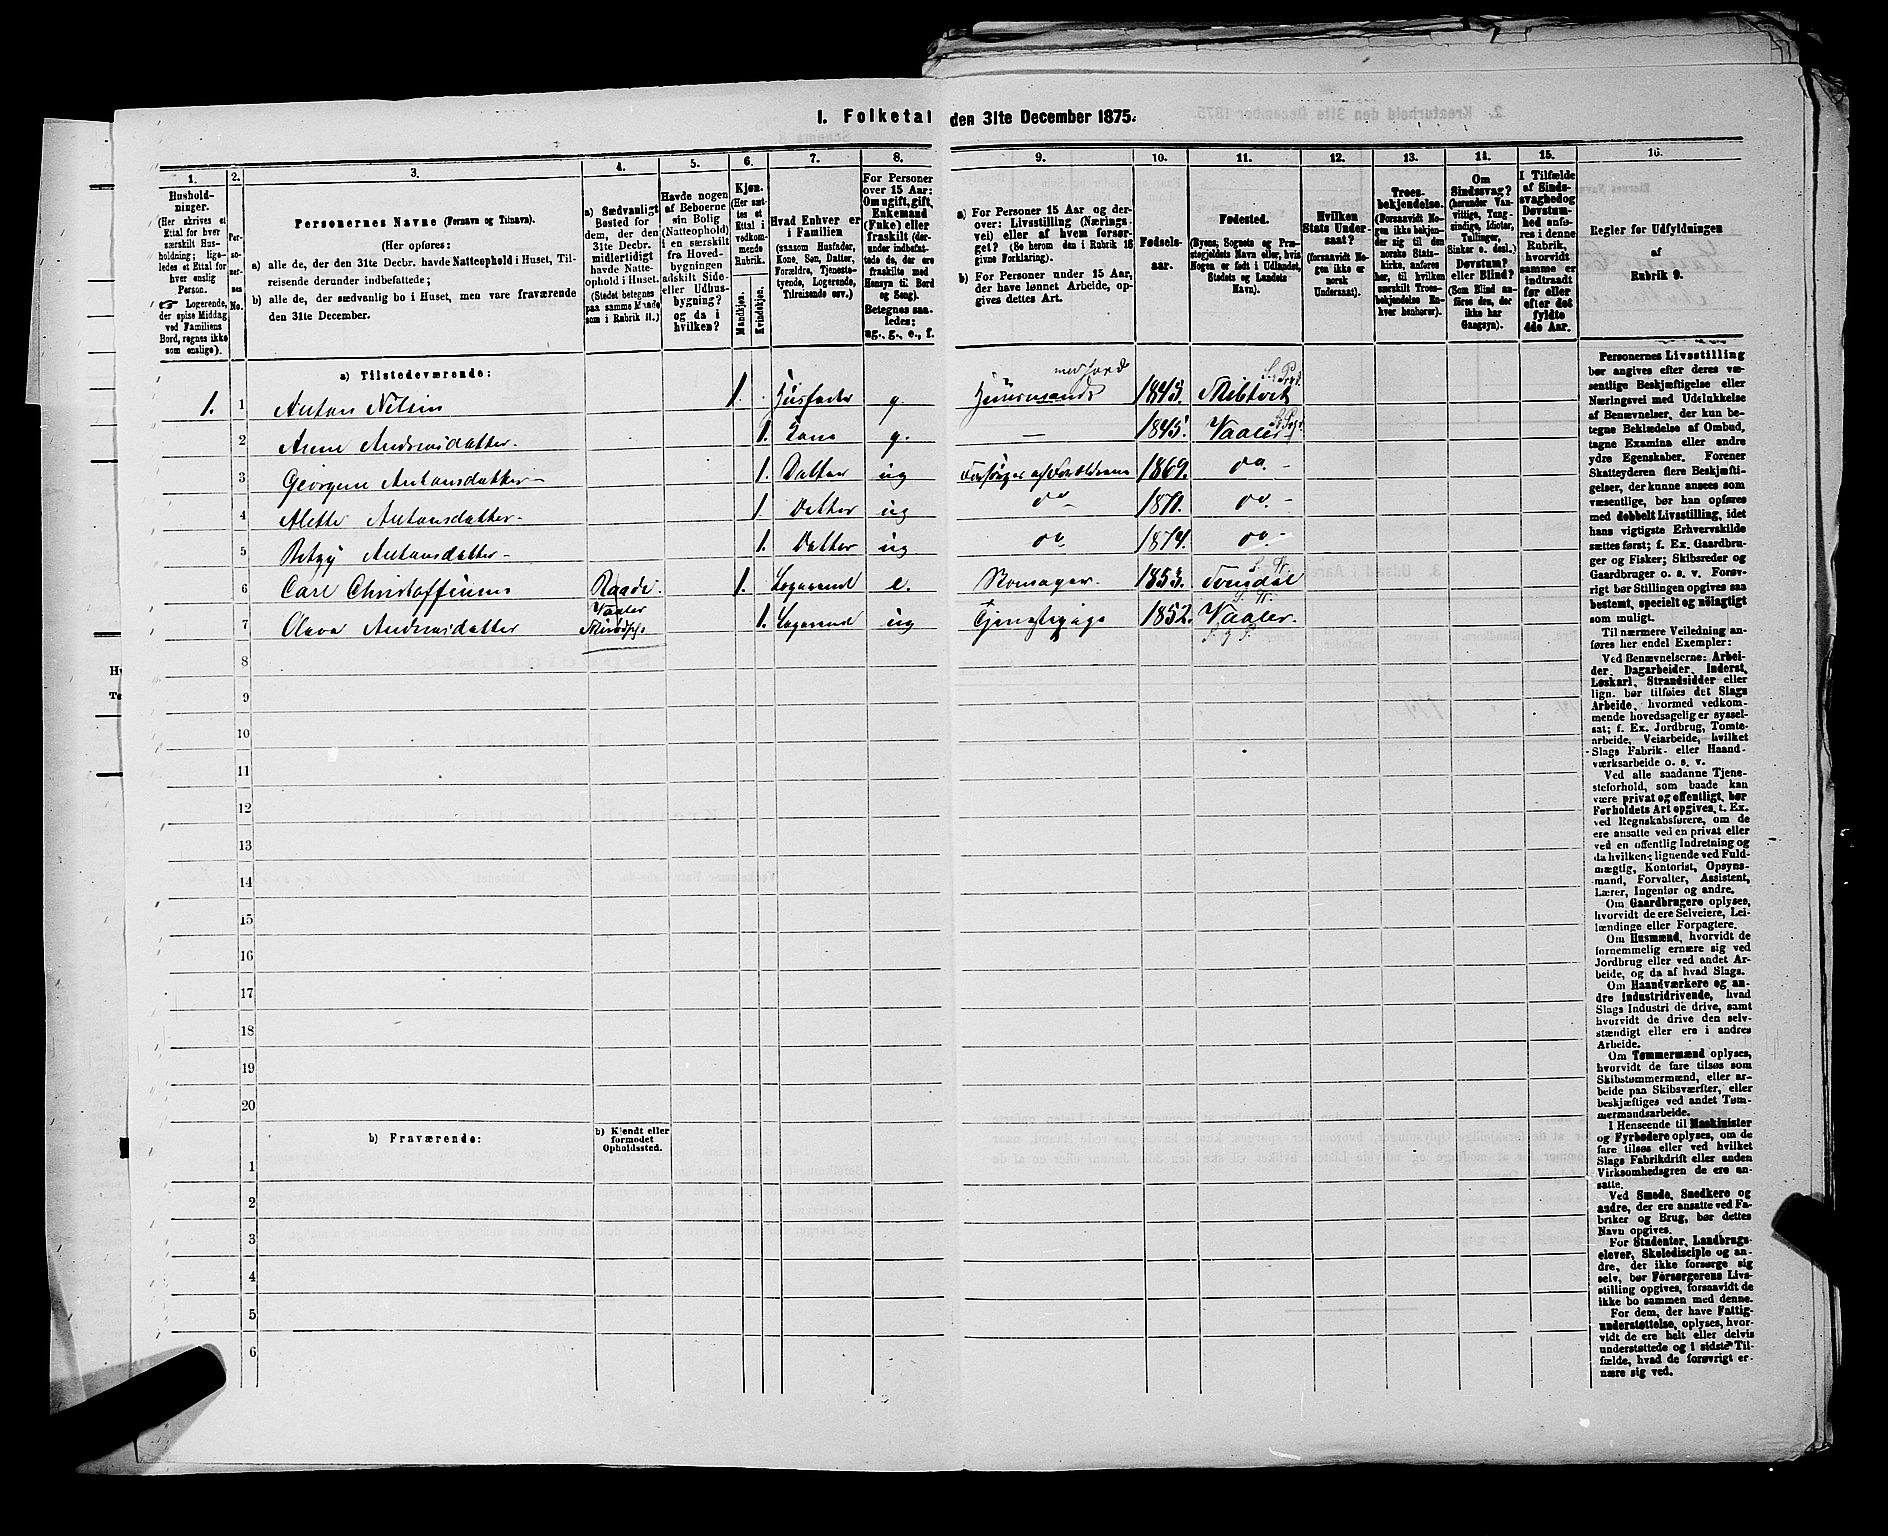 I. Folketal den 31te December 1875.
1.
2.
3.
4.
5.
6.
7.
8.
9.
10.
11.
12.
13.
14.
15.
16.
Husholdninger.
(Her skrives et
Ettal for hver
særskilt Husholdning;
ligeledes et Ettal for
hver enslig
Person.
Logerende,
der spise Middag
ved Familiens
Bord, regnes ikke
som enslige).
Personernes No.
Personernes Navne (Fornavn og Tilnavn).
(Her opføres:
a) alle de, der den 31te Decbr. havde Natteophold i Huset, Tilreisende
derunder indbefattede;
b) alle de, der sædvanlig bo i Huset, men vare fraværende
den 31te December.
a) Sædvanligt
Bosted for
dem, der den
31te Decbr.
midlertidigt
havde Natteophold
i Huset.
(Stedet betegnes
paa samme Maade
som i Rubrik 11.)
Havde nogen
af Beboerne
sin Bolig
(Natteophold)
i en særskilt
fra Hovedbygningen
adskilt Side-
eller Udhusbygning?
og da i
hvilken?
Kjøn.
(Her sættes
et
Ettal i
vedkommende
Rubrik.
Mandkjøn.
Kvindekjøn.
Hvad Enhver er
i Familien
(saasom Husfader,
Kone, Søn, Datter,
Forældre, Tjenestetyende,
Logerende,
Tilreisende osv.)
For Personer
over 15 Aar:
Om ugift, gift,
Enkemand
(Enke) eller
fraskilt (derunder
indbefattede
de, der ere
fraskilte med
Hensyn til Bord
og Seng).
Betegnes saaledes:
ug., g., e., f.
a) For Personer 15 Aar og derover:
Livsstilling (Næringsvei)
eller af hvem forsørget?
(Se herom den i Rubrik 16
givne Forklaring).
b) For Personer under 15 Aar,
der have lønnet Arbeide, opgives
dettes Art.
Fødselsaar.
Fødested.
(Byens, Sognets og Præstegjeldets
Navn eller, hvis
Nogen er født i Udlandet,
Stedets og Landets
Navn).
Hvilken
Stats Undersaat?
(forsaavidt Nogen
ikke er
norsk
Undersaat).
Troesbekjendelse.
(Forsaavidt Nogen
ikke bekjender
sig til den
norske Statskirke,
anføres
her, til hvilken
særskilt Troesbekjendelse
Enhver
henhører).
Om
Sindssvag?
(herunder Vanvittige,
Tungsindige,
Idioter,
Tullinger,
Sinker o. desl.).
Døvstum?
eller Blind?
(Som Blind anføres
den, der
ikke har
Gangsyn).
I Tilfælde
af Sindssvaghed
og
Døvstumhed
anføres
i denne
Rubrik,
hvorvidt
samme er
indtraadt
før eller
efter det
fyldte
4de Aar.
Regler for Udfyldningen
af
Rubrik 9.
a) Tilstedeværende:
1. 1 Anton Nilsen 1. Husfader g. med Jord 1843. S. Prgd.
2 Anne Andreasdatter. 1. Kone g. — 1845. Vaaler
3 Georgine Antonsdatter 1. Datter ug 1869. do. -
4 Alette Antonsdatter 1. Datter ug do 1871. do. -
5 Antonsdatter 1. Datter ug do 1874. do. -
6 Carl Christoffersens Raade. 1. Logerend e. 1853.
7 Olava Andreasdatter Vaaler 1. Logerend ug Tjenestepige 1852. Vaaler.
8
9
10
11
12
13
14
15
16
17
18
19
20
b) Fraværende:
b) Kjendt eller
formodet
Opholdssted.
1
2
3
4
5
6
Personernes Livsstilling
bør angives efter deres væsentlige
Beskjæftigelse eller
Næringsvei med Udelukkelse
af Benævnelser, der kun betegne
Beklædelse af Ombud,
tagne Examina eller andre
ydre Egenskaber. Forener
Skatteyderen flere Beskjæftigelser,
der kunne ansees som
væsentlige, bør han opføres
med dobbelt Livsstilling, idet
hans vigtigste Erhvervskilde
sættes først; f. Ex. Gaardbruger
og Fisker; Skibsreder og
Gaardbruger o. s. v. Forøvrigt
bør Stillingen opgives saa
bestemt, specielt og nøiagtigt
som muligt.
Til nærmere Veiledning anføres
her endel Exempler:
Ved Benævnelserne: Arbeider,
Dagarbeider, Inderst,
Løskarl, Strandsidder eller
lign. bør tilføies det Slags
Arbeide, hvormed vedkommende
hovedsagelig er sysselsat;
f. Ex. Jordbrug, Tomtearbeide,
Veiarbeide, hvilket
Slags Fabrik- eller Haandværksarbeide
o. s. v.
Ved alle saadanne Tjenesteforhold,
som baade kan
være privat og offentligt, bør
Forholdets Art opgives, t. Ex.
ved Regnskabsførere, om de
ere ansatte ved en privat eller
ved en offentlig Indretning og
da hvilken; lignende ved Fuldmægtig,
Kontorist, Opsynsmand,
Forvalter, Assistent,
Lærer, Ingeniør og andre.
Om Gaardbrugere oplyses,
hvorvidt de ere Selveiere, Leilændinge
eller Forpagtere.
Om Husmænd, hvorvidt de
fornemmelig ernære sig ved
Jordbrug eller ved andet Arbeide,
og da af hvad Slags.
Om Haandværkere og andre
industridrivende, hvad
Slags Industri de drive, samt
hvorvidt de drive den selvstændigt
eller ere i andres
Arbeide.
Om Tømmermænd oplyses,
hvorvidt de fare tilsøs som
Skibstømmermænd, eller arbeide
paa Skibsværfter, eller
beskjæftiges ved andet Tømmermandsarbeide.
I Henseende til Maskinister
og Fyrbødere oplyses, om de
fare tilsøs eller ved hvilket
Slags Fabrikdrift eller anden
Virksomhedsgren de ere ansatte.
Ved Smede, Snedkere og
andre, der ere ansatte ved Fabriker
og Brug, bør dettes
Navn opgives.
For Studenter, Landbrugselever,
Skoledisciple og andre,
der ikke forsørge sig
selv, bør Forsørgerens Livsstilling
opgives, forsaavidt de
ikke bo sammen med denne.
For dem, der have Fattigunderstøttelse,
oplyses, hvorvidt
de ere helt eller delvis
understøttede og i sidste Tilfælde,
hvad de forøvrigt ernære
sig ved.